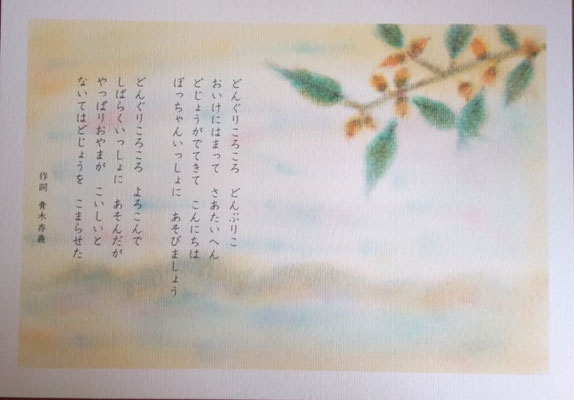 どんぐりころころ　どんぶりこ
おいけにはまって　さあたいへん
どじょうがでてきて　こんにちは
ぼっちゃんいっしょに　あそびましょう
どんぐりころころ　よろこんで
しばらくいっしょに　あそんだが
やっぱりおやまが　こいしいと
ないてはどじょうを　こまらせた
作詞　青木存義